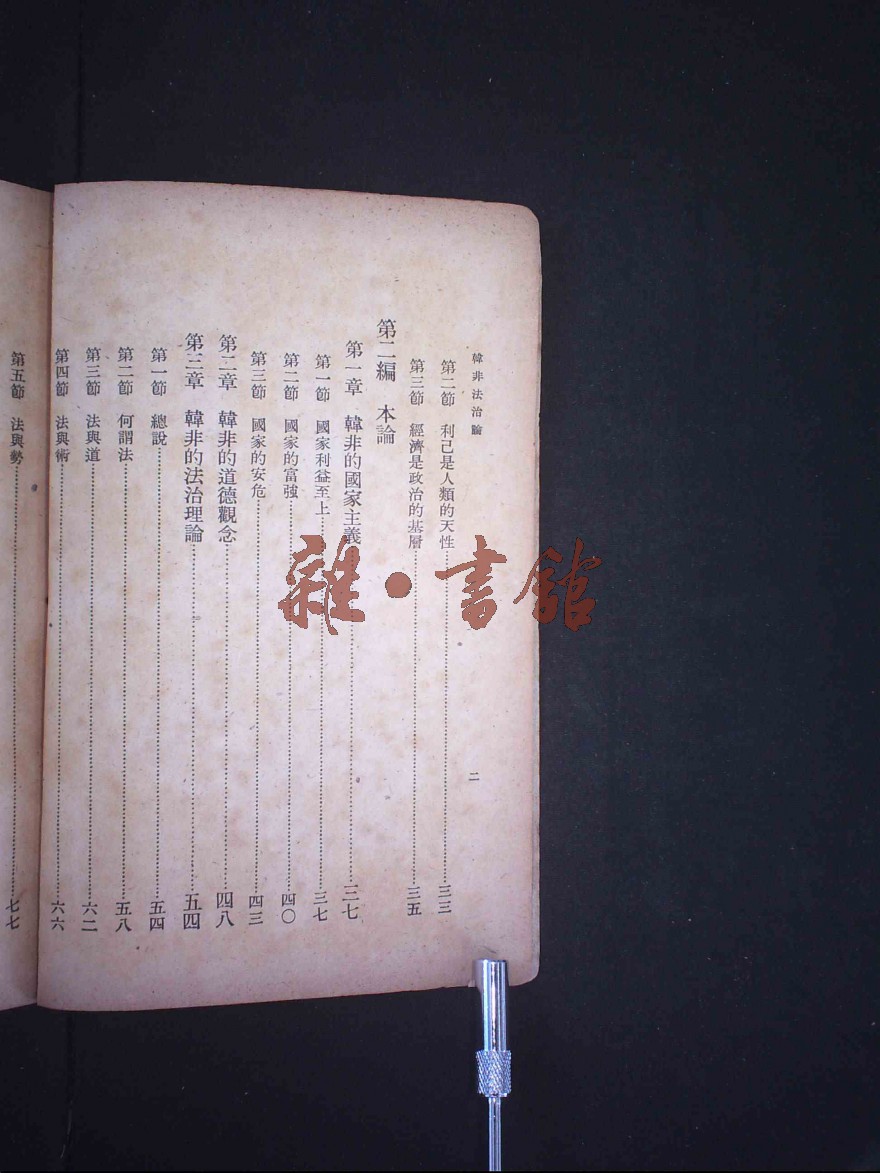 韓非法治論
二
第二節　利己是人類的天性……三三
第三節　經濟是政治的基層……三五
第二編　本論
第一章　韓非的國家主義……三七
第一節　國家利益至上……三七
第二節　國家的富強……四〇
第三節　國家的安危……四三
第二章　韓非的道德觀念……四八
第三章　韓非的法治理論……五四
第一節　總說……五四
第二節　何謂法……五八
第三節　法與道……六二
第四節　法與術……六六
第五節　法與勢……七七
雜·書館